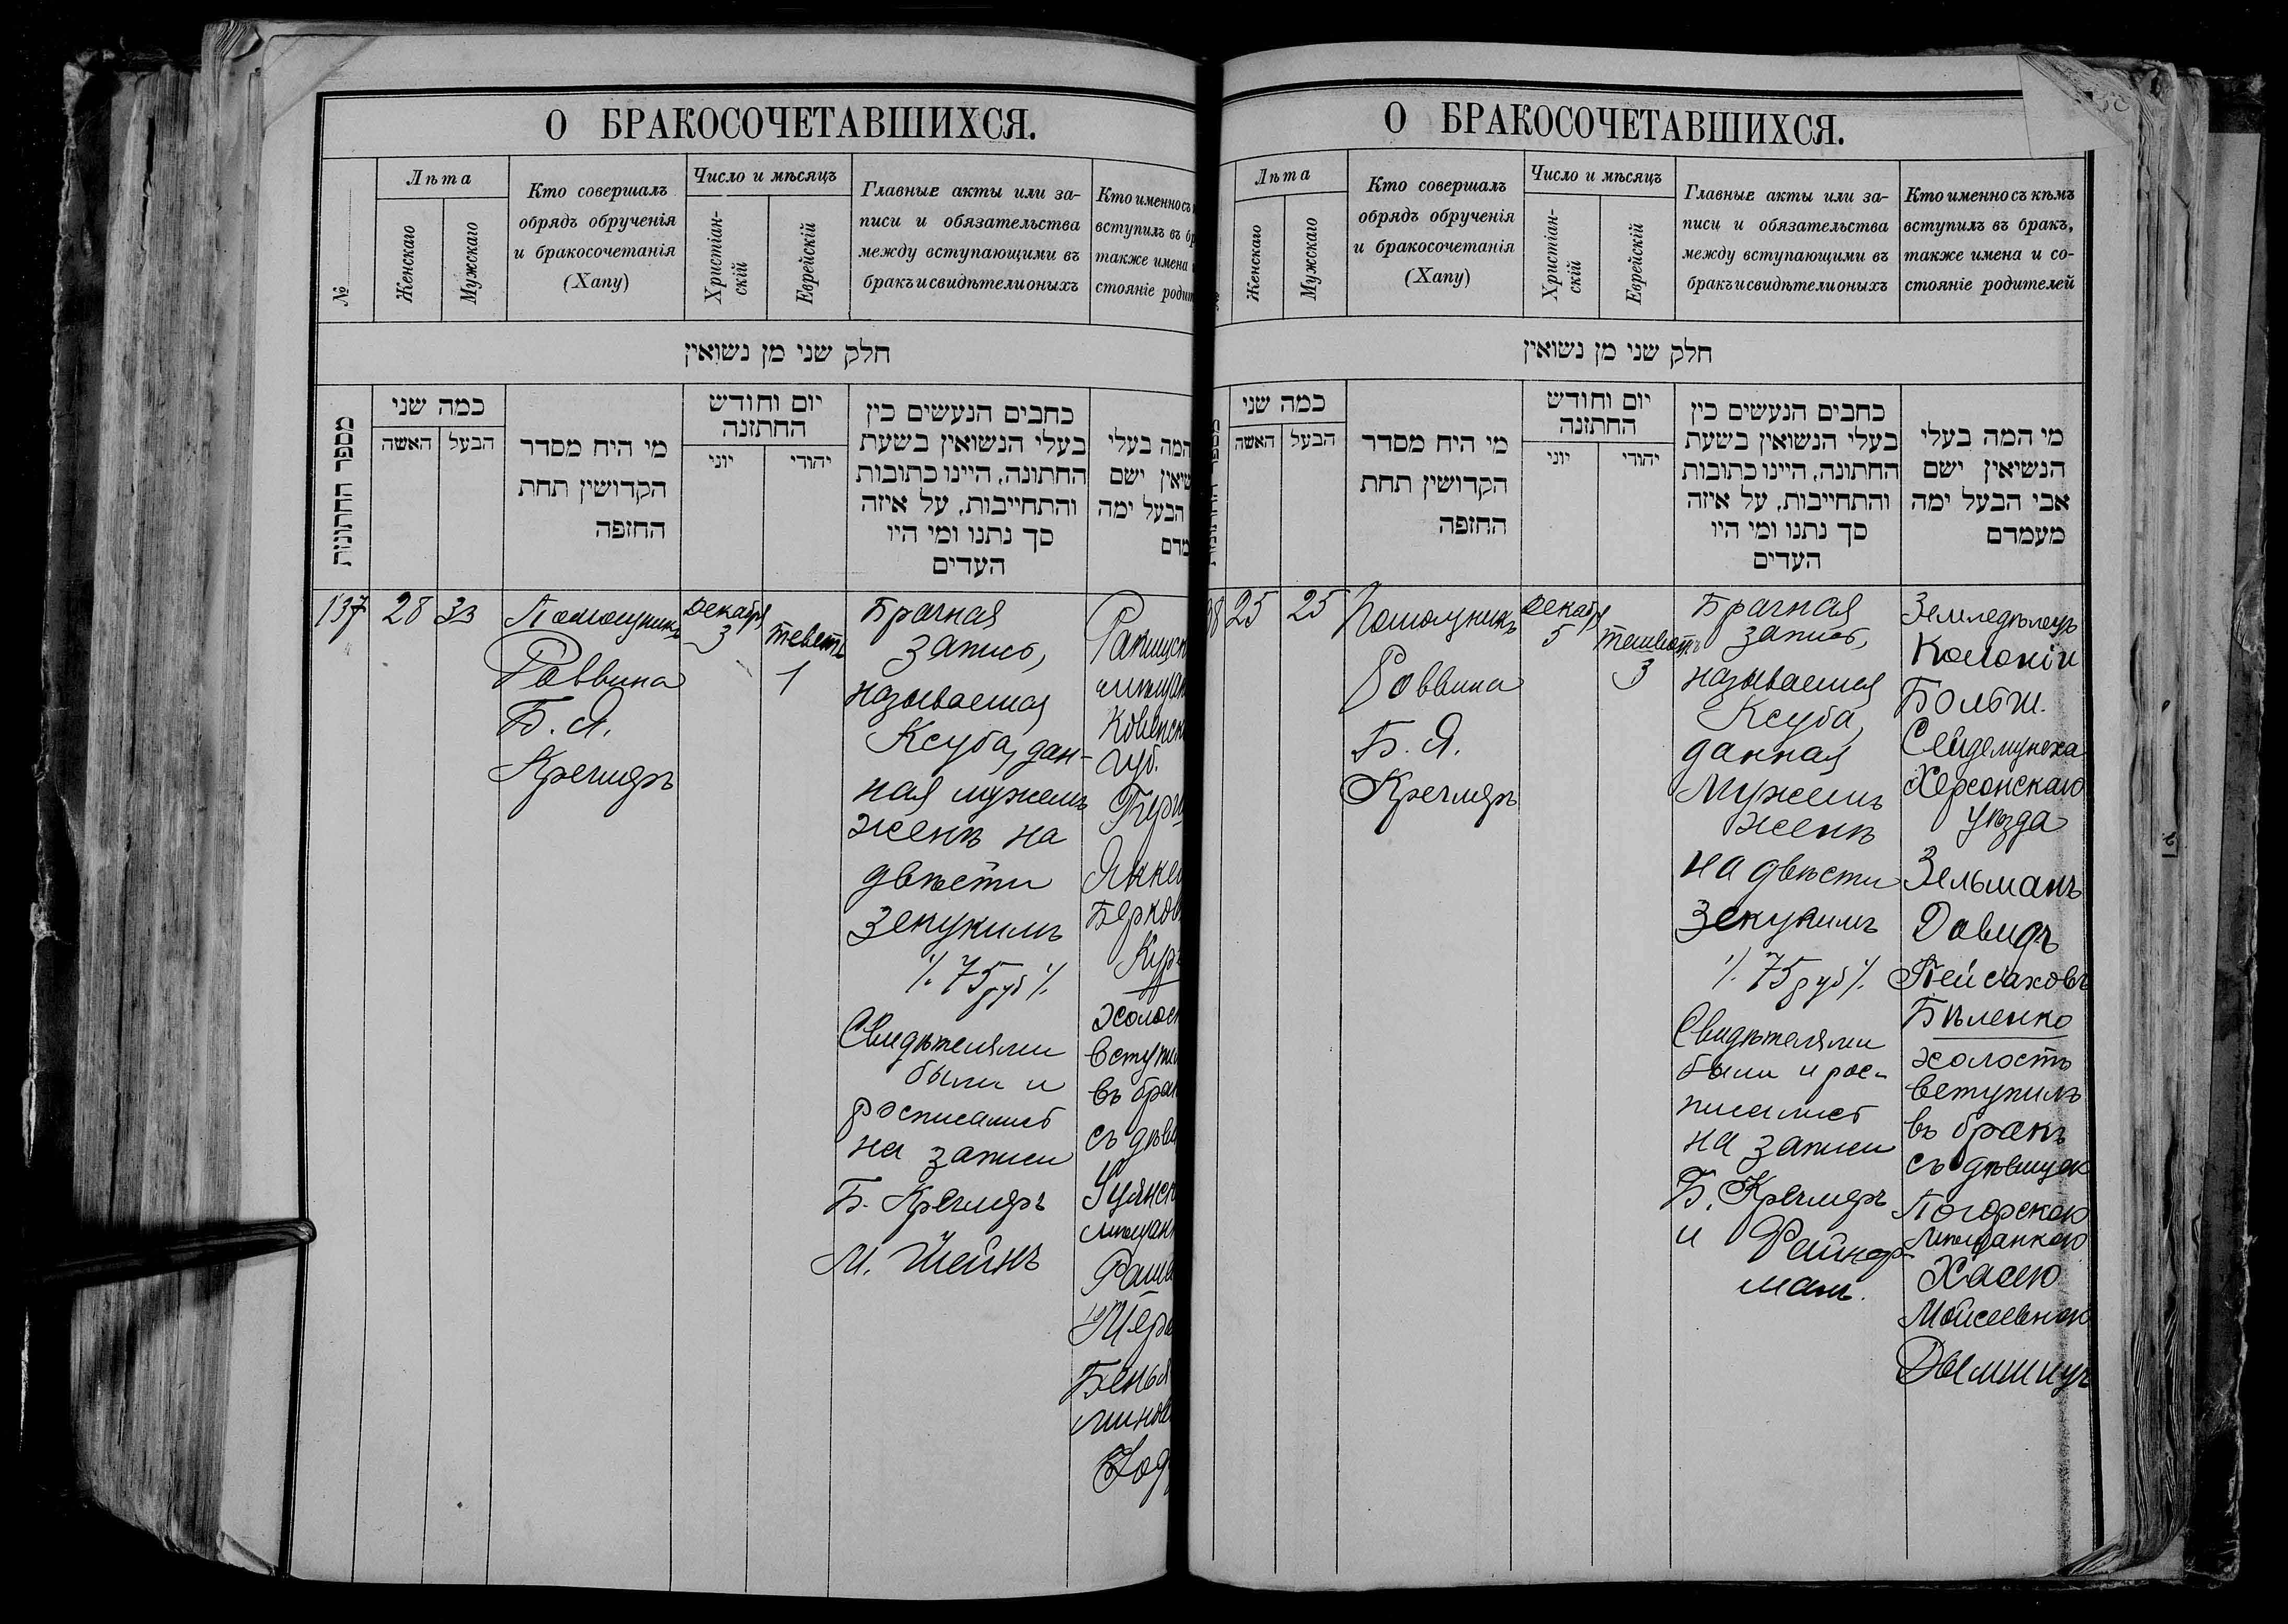 О БРАКОСОЧЕТАВШИХСЯ.
№
Лѣта
Женскаго
Мужскаго
Кто совершалъ
обрядъ обрученія
и бракосочетанія
(Хапу)
Число и мѣсяцъ
Христіан-
скій
Еврейскій
Главные акты или за-
писи и обязательства
между вступающими въ
бракъ и свидѣтели оныхъ
Кто именно съ
вступилъ въ б
также имена
стояніе роди
חלק שני מן נשואין
מספר החתונות
כמה שני
האשה
הבעל
מי היח מסדר
הקדושין תחת
החזפה
יום וחודש
החתזנה
יוני
יהודי
כחבים הנעשים כין
בעלי הנשואין בשעת
החתונה, היינו כתובות
והתחייבות, על איזה
סך נתנו ומי היו
העדים
המה בעלי
שיאין ישם
הבעל ימה
מדם
137
28
33
Помощникъ
Раввина
Б. Я.
Кречмеръ
Декабря
3
Теветъ
1
Брачная
запись,
называемая
Ксуба, дан-
ная мужемъ
женѣ на
двѣсти
зекукимъ
·/. 75 руб ·/.
Свидѣтелями
были и
росписались
на записи
Б. Кречмеръ
М. Шейнъ
Ковенск
губ.
Янкел
Берков
холост
вступил
въ брак
съ дѣви
мѣщанк
Бенья
минов
О БРАКОСОЧЕТАВШИХСЯ.
Лѣта
Женскаго
Мужскаго
Кто совершалъ
обрядъ обрученія
и бракосочетанія
(Хапу)
Число и мѣсяцъ
Христіан-
скій
Еврейскій
Главные акты или за-
писи и обязательства
между вступающими въ
бракъ и свидѣтели оныхъ
Кто именно съ кѣмъ
вступилъ въ бракъ,
также имена и со-
стояніе родителей
חלק שני מן נשואין
כמה שני
האשה
הבעל
מי היח מסדר
הקדושין תחת
החזפה
יום וחודש
החתזנה
יוני
יהודי
כחבים הנעשים כין
בעלי הנשואין בשעת
החתונה, היינו כתובות
והתחייבות, על איזה
סך נתנו ומי היו
העדים
מי המה בעלי
הנשיאין ישם
אבי הבעל ימה
מעמדם
8
25
25
Помощникъ
Раввина
Б. Я.
Кречмеръ
Декабря
5
3
Брачная
запись,
называемая
Ксуба,
данная
Мужемъ
женѣ
на двѣсти
зекукимъ
·/. 75 руб ·/.
Свидѣтелями
были и рос-
писались
на записи
Б. Кречмеръ
и Файнер-
манъ.
Земледѣлецъ
Колоніи
Больш.
Сейдеминуха
Херсонскаго
уѣзда
Зельманъ
Давидъ
Пейсаховъ
Бѣленко
холостъ
вступилъ
въ бракъ
съ дѣвицею
Погарскою
мѣщанкою
Хасею
Моисеевною
Дымшицъ